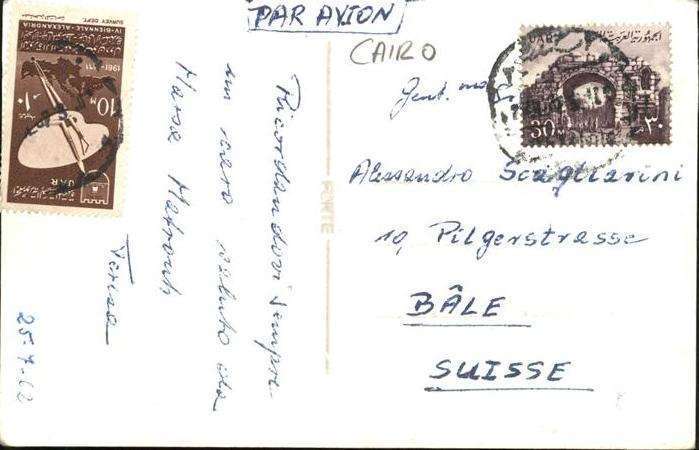 PAR AVION
CAIRO
Gent. mo
Alessandro Scagliarini
10, Pilgerstrasse
BÂLE
SUISSE
Ricordandovi sempre
un caro saluto da
Marsa Matrouh
Teresa
25-7-62
SURVEY DEPT.
IV-BIENNALE-ALEXANDRIA
1961
10 M
١٠
UAR
30
٣٠
الجمهورية العربية